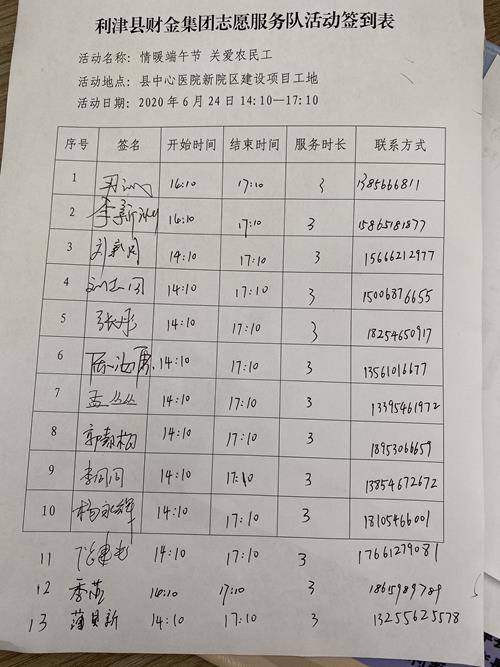 利津县财金集团志愿服务队活动签到表
活动名称：情暖端午节 关爱农民工
活动地点：县中心医院新院区建设项目工地
活动日期：2020年6月24日14:10—17:10
序号 签名 开始时间 结束时间 服务时长 联系方式
1 14:10 17:10 3 1385666811
2 李新 14:10 17:10 3 15865181877
3 14:10 17:10 3 15666212977
4 14:10 17:10 3 15006876655
5 张彤 14:10 17:10 3 18254650917
6 14:10 17:10 3 13561016677
7 孟丛丛 14:10 17:10 3 13395461972
8 郭梅 14:10 17:10 3 18953066659
9 李同同 14:10 17:10 3 13854672672
10 杨永辉 14:10 17:10 3 18105466001
11 14:10 17:10 3 17661279081
12 季蕊 14:10 17:10 3 18615989789
13 蒲贝新 14:10 17:10 3 13255625578